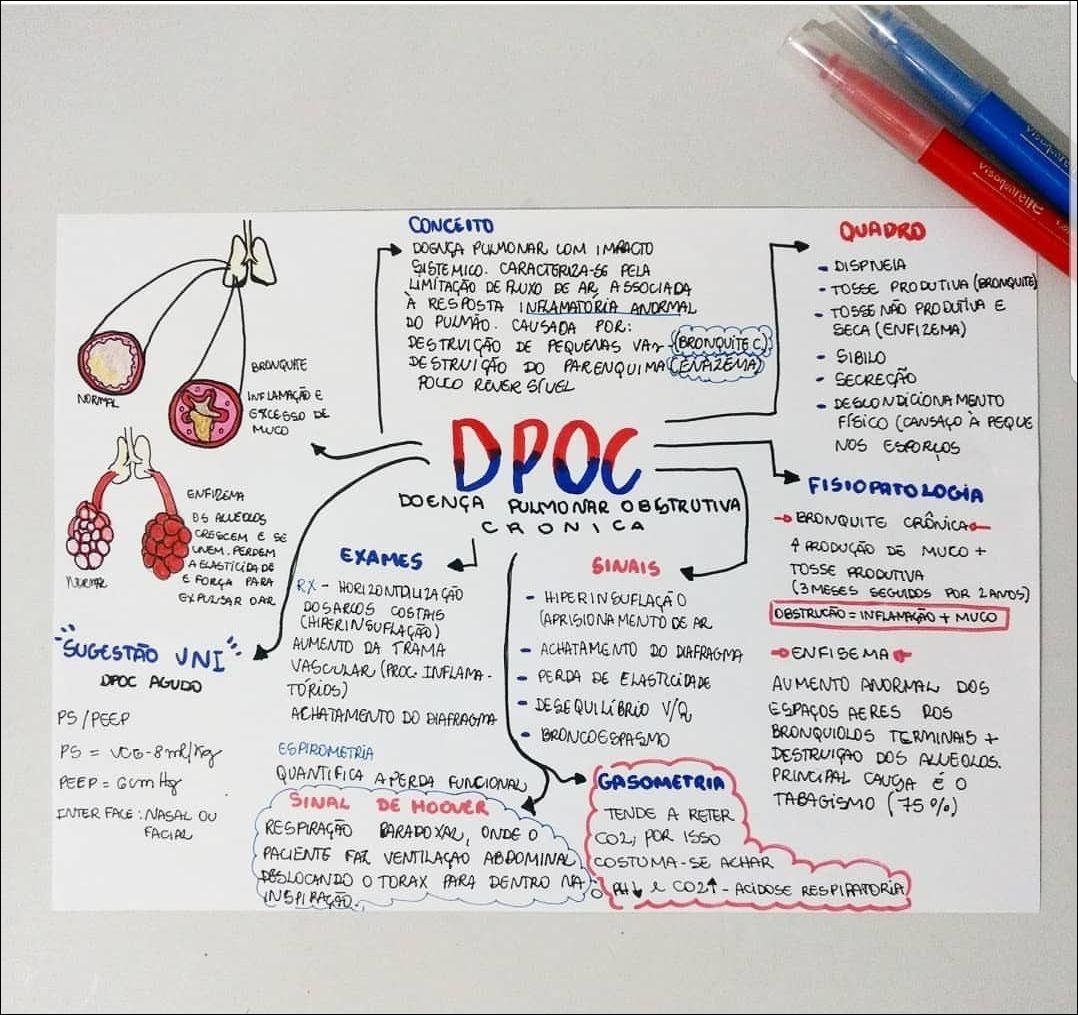 CONCEITO
DOENÇA PULMONAR COM IMPACTO
SISTEMICO. CARACTERIZA-SE PELA
LIMITAÇÃO DE FLUXO DE AR, ASSOCIADA
À RESPOSTA INFLAMATÓRIA ANORMAL
DO PULMÃO. CAUSADA POR:
DESTRUIÇÃO DE PEQUENAS VAS (BRONQUITE C.)
DESTRUIÇÃO DO PARENQUIMA (ENFIZEMA)
POUCO REVERSÍVEL
QUADRO
- DISPNEIA
- TOSSE PRODUTIVA (BRONQUITE)
- TOSSE NÃO PRODUTIVA E
SECA (ENFIZEMA)
- SIBILO
- SECREÇÃO
- DESCONDICIONAMENTO
FÍSICO (CANSAÇO À PEQUE
NOS ESFORÇOS
NORMAL
BRONQUITE
INFLAMAÇÃO E
EXCESSO DE
MUCO
NORMAL
ENFIZEMA
OS ALVEOLOS
CRESCEM E SE
UNEM. PERDEM
A ELASTICIDADE
E FORÇA PARA
EXPULSAR O AR
DPOC
DOENÇA PULMONAR OBSTRUTIVA
CRONICA
FISIOPATOLOGIA
BRONQUITE CRÔNICA
↑ PRODUÇÃO DE MUCO +
TOSSE PRODUTIVA
(3 MESES SEGUIDOS POR 2 ANOS)
OBSTRUÇÃO = INFLAMAÇÃO + MUCO
ENFISEMA
AUMENTO ANORMAL DOS
ESPAÇOS AEREOS DOS
BRONQUIOLOS TERMINAIS +
DESTRUIÇÃO DOS ALVEOLOS.
PRINCIPAL CAUSA É O
TABAGISMO (75%)
EXAMES
RX - HORIZONTALIZAÇÃO
DOS ARCOS COSTAIS
(HIPERINSUFLAÇÃO)
AUMENTO DA TRAMA
VASCULAR (PROC. INFLAMA-
TÓRIOS)
ACHATAMENTO DO DIAFRAGMA
ESPIROMETRIA
QUANTIFICA A PERDA FUNCIONAL
SINAIS
- HIPERINSUFLAÇÃO
(APRISIONAMENTO DE AR
- ACHATAMENTO DO DIAFRAGMA
- PERDA DE ELASTICIDADE
- DESEQUILÍBRIO V/Q
- BRONCOESPASMO
"SUGESTÃO VNI"
DPOC AGUDO
PS/PEEP
PS = VC6-8ml/Kg
PEEP = 6cmHg
INTERFACE: NASAL OU
FACIAL
SINAL DE HOOVER
RESPIRAÇÃO PARADOXAL, ONDE O
PACIENTE FAZ VENTILAÇÃO ABDOMINAL,
DESLOCANDO O TORAX PARA DENTRO NA
INSPIRAÇÃO.
GASOMETRIA
TENDE A RETER
CO2, POR ISSO
COSTUMA-SE ACHAR
PH↓ e CO2↑ - ACIDOSE RESPIRATORIA